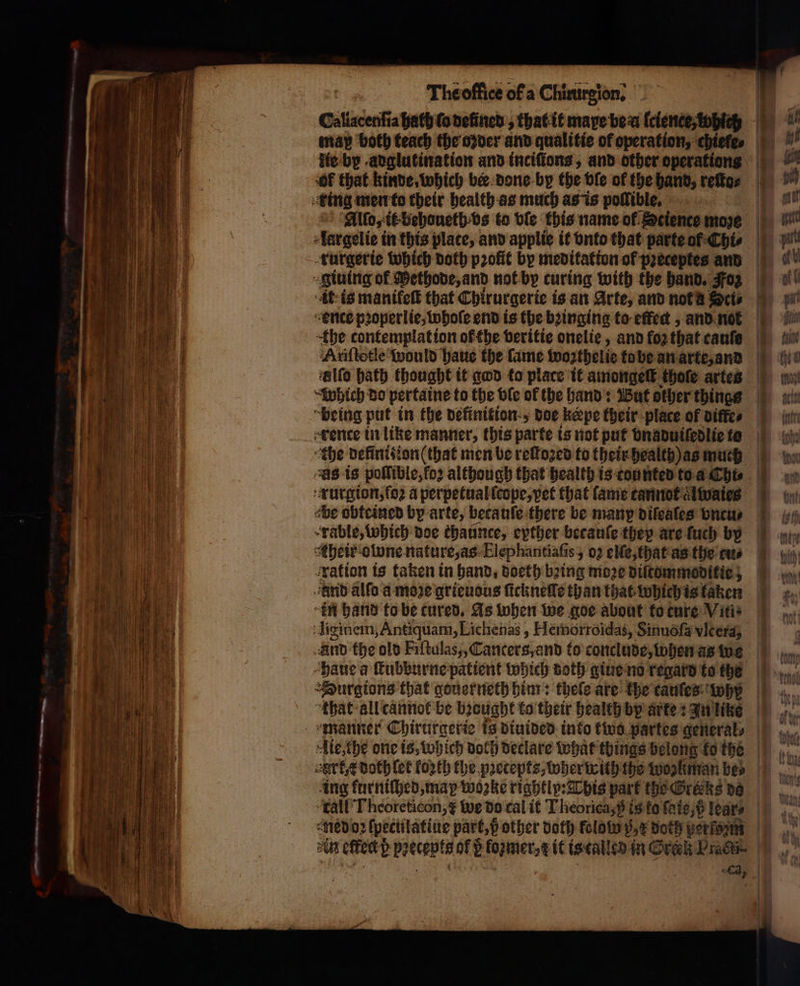 The office of a Chirurgion.
Caliacensia hath so defined, that it maye be a science, which
may both teach the order and qualitie of operation, chiefe-
lie by adglutination and incisions, and other operations
of that kinde, which bee done by the vse of the hand, resto-
ring men to their health as much as is possible.
Also, it behoueth vs to vse this name of Science more
largelie in this place, and applie it vnto that parte of Chi-
rurgerie which doth profit by meditation of preceptes and
giuing of Methode, and not by curing with the hand. For
it is manifest that Chirurgerie is an Arte, and not a Sci-
ence properlie, whose end is the bringing to effect, and not
the contemplation of the veritie onelie, and for that cause
Aristotle would haue the same worthelie to be an arte, and
also hath thought it good to place it amongest those artes
which do pertaine to the vse of the hand: But other things
being put in the definition, doe keepe their place of diffe-
rence in like manner, this parte is not put vnaduisedlie to
the definition (that men be restored to their health) as much
as is possible, for although that health is counted to a Chi-
rurgion, for a perpetual scope, yet that same cannot alwaies
be obteined by arte, because there be many diseases vncu-
rable, which doe chaunce, eyther because they are such by
their owne nature, as Elephantiasis, or else, that as the cu-
ration is taken in hand, doeth bring more discommoditie,
and also a more grieuous sicknesse than that which is taken
in hand to be cured. As when we goe about to cure Viti-
liginem, Antiquam, Lichenas, Hemorroidas, Sinuosa vlcera,
and the old Fistulas,, Cancers, and to conclude, when as we
haue a stubburne patient which doth giue no regard to the
Surgions that gouerneth him: these are the causes why
that all cannot be brought to their health by arte: In like
manner Chirurgerie is diuided into two partes general-
lie, the one is, which doth declare what things belong to the
art, & doth set forth the precepts, wherwith the workman be-
ing furnished, may worke rightly: This part the Greeks do
call Theoreticon, & we do cal it Theorica, þͭ is to saie, þͤ lear-
ned or speculatiue part, þͤ other doth folow þͭ, & doth perform
in effect þͤ precepts of þͤ former, & it is called in Greek Practi-
ca,